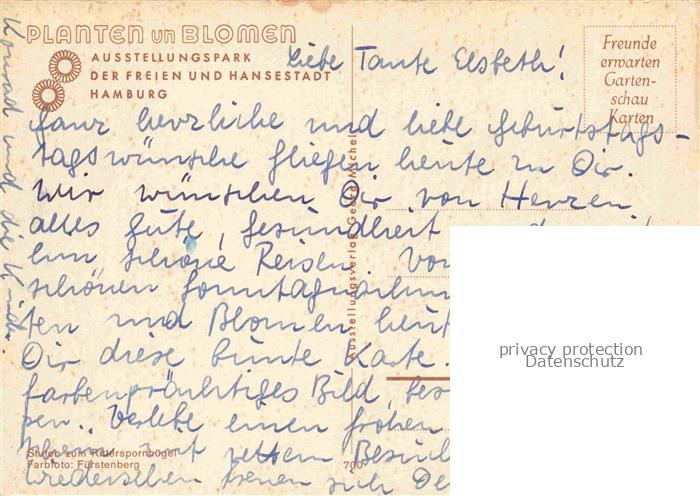 PLANTEN un BLOMEN
AUSSTELLUNGSPARK
DER FREIEN UND HANSESTADT
HAMBURG
Freunde
erwarten
Garten-
schau
Karten
Liebe Tante Elsbeth!
Ganz herzliche und liebe Geburtstags-
tagswünsche fliegen heute zu Dir.
Wir wünschen Dir von Herzen
alles Gute, Gesundheit
schöne Reisen. Von
schönen
ten und Blomen
Dir diese bunte Karte.
farbenprächtiges Bild,
Verlebe einen frohen
mit nettem Besuch
Wiedersehen freuen sich
Konrad und die Kinder.
Stufen zum Rittersporn­hügel
Farbfoto: Fürstenberg
700
Ausstellungsverlag Georg Michel
privacy protection
Datenschutz